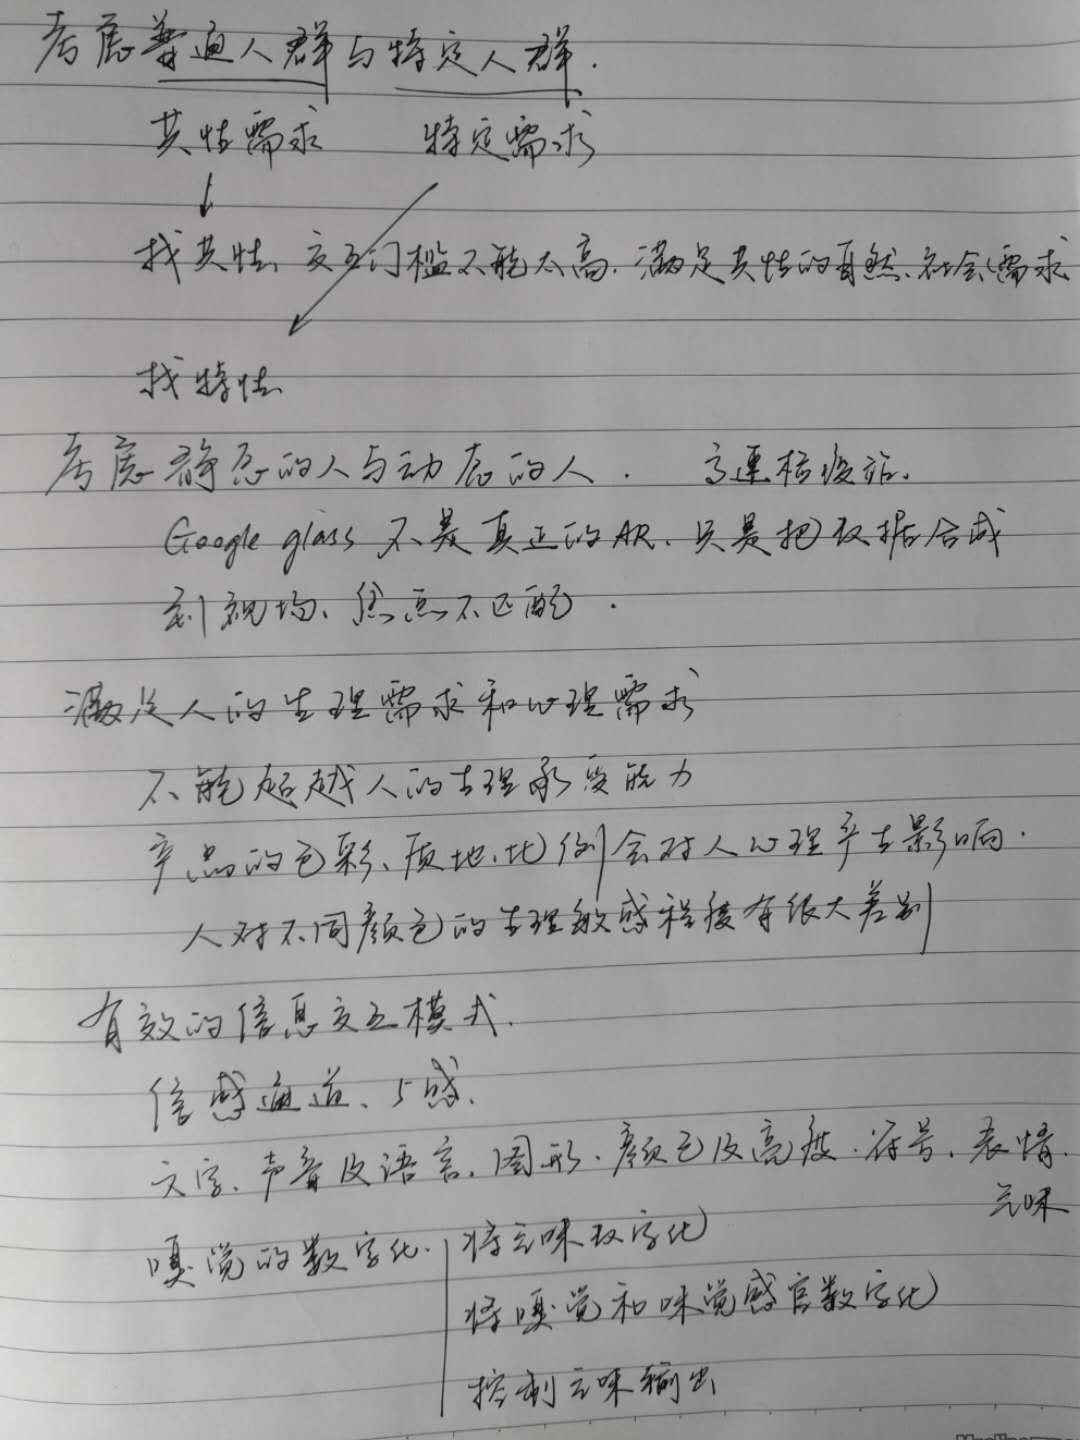 考虑普通人群与特定人群.
共性需求 特定需求
找共性、交互门槛不能太高.满足共性的自然、社会需求
找特性
考虑静态的人与动态的人. 高速检疫站.
Google glass 不是真正的AR、只是把数据合成
到视场、焦点不匹配.
满足人的生理需求和心理需求
不能超越人的生理承受能力
产品的色彩、质地、比例会对人心理产生影响.
人对不同颜色的生理敏感程度有很大差别
有效的信息交互模式.
信感通道、5感、
文字、声音及语言、图形、颜色及亮度、符号、表情、
气味
嗅觉的数字化. 将气味数字化
将嗅觉和味觉感官数字化
控制气味输出